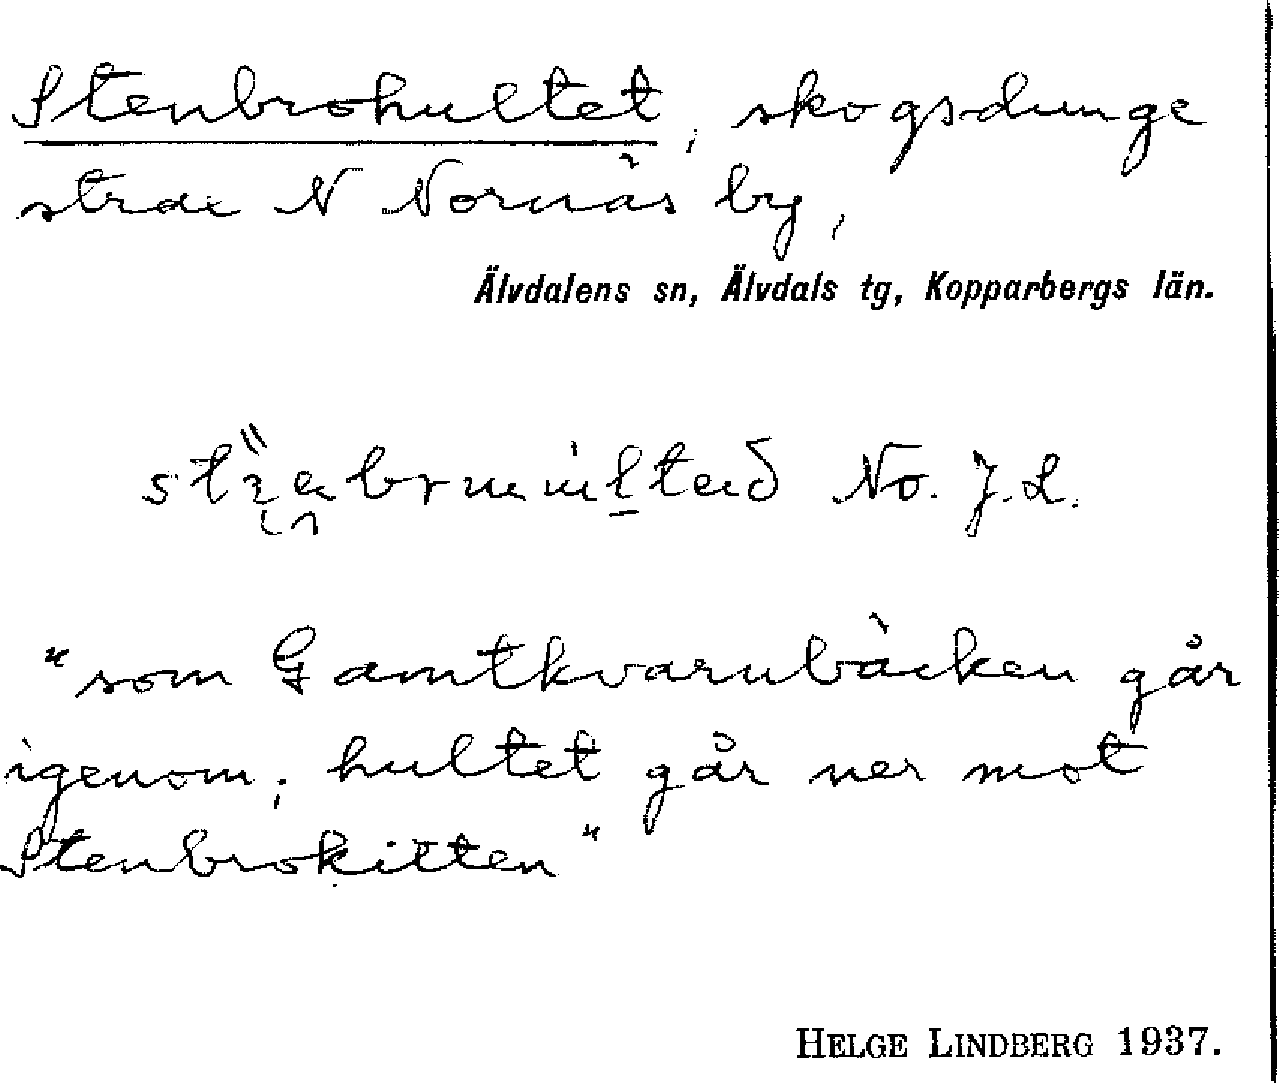 Stenbrohultet, skogsdunge
strax N Nornäs by,
Älvdalens sn, Älvdals tg, Kopparbergs län.
No. J. L.
"som Gamtkvarnbäcken går
igenom; hultet går ner mot
Stenbrokitten"
HELGE LINDBERG 1937.